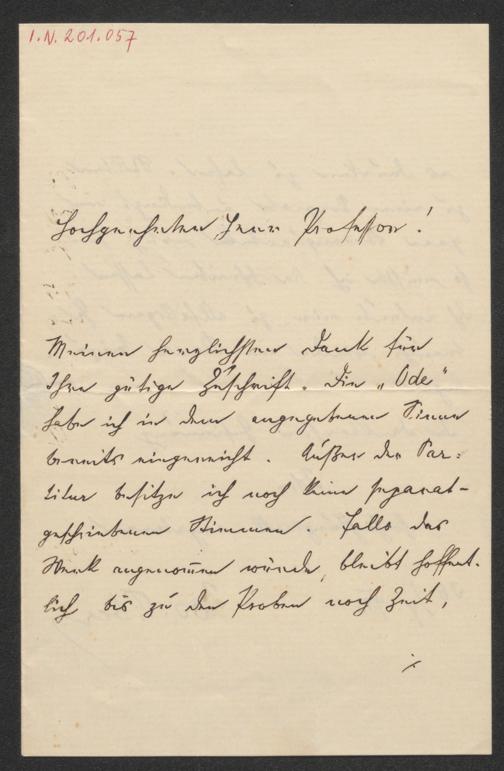 I.N. 201.057
Hochgeehrter Herr Professor!
Meinen herzlichsten Dank für
Ihre gütige Zuschrift. Die „Ode“
habe ich in dem angegebenen Sinne
bereits eingereicht. Außer der Par=
titur besitze ich noch keine separat-
geschriebenen Stimmen. Falls das
Werk angenom̅en würde, bleibt hoffent-
lich bis zu den Proben noch Zeit,